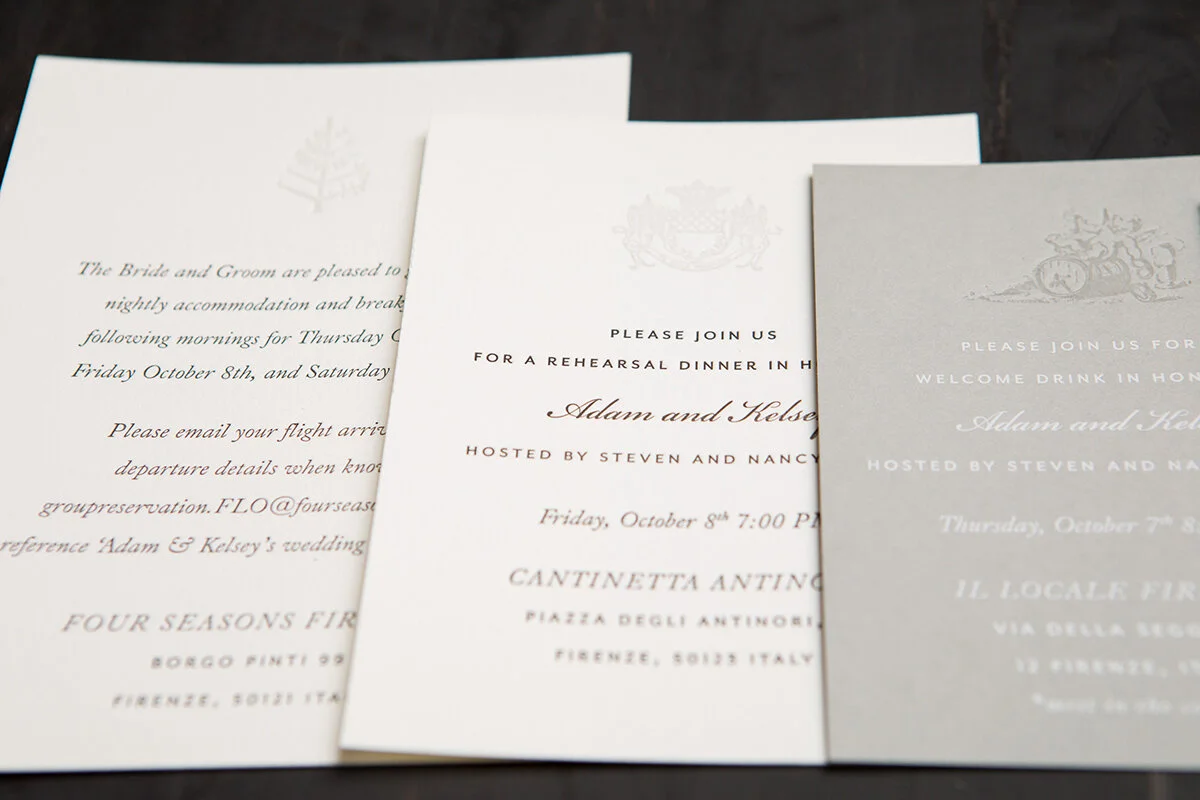 The Bride and Groom are pleased to
nightly accommodation and break
following mornings for Thursday
Friday October 8th, and Saturday
Please email your flight arriv
departure details when know
groupreservation.FLO@fourseas
reference ‘Adam & Kelsey’s wedding
FOUR SEASONS FIR
BORGO PINTI 99
FIRENZE, 50121 ITA
PLEASE JOIN US
FOR A REHEARSAL DINNER IN H
Adam and Kelsey
HOSTED BY STEVEN AND NANCY
Friday, October 8th 7:00 PM
CANTINETTA ANTINO
PIAZZA DEGLI ANTINORI,
FIRENZE, 50123 ITALY
PLEASE JOIN US FOR
WELCOME DRINK IN HON
Adam and Kel
HOSTED BY STEVEN AND NA
Thursday, October 7th 8
IL LOCALE FIR
VIA DELLA SEG
12 FIRENZE,